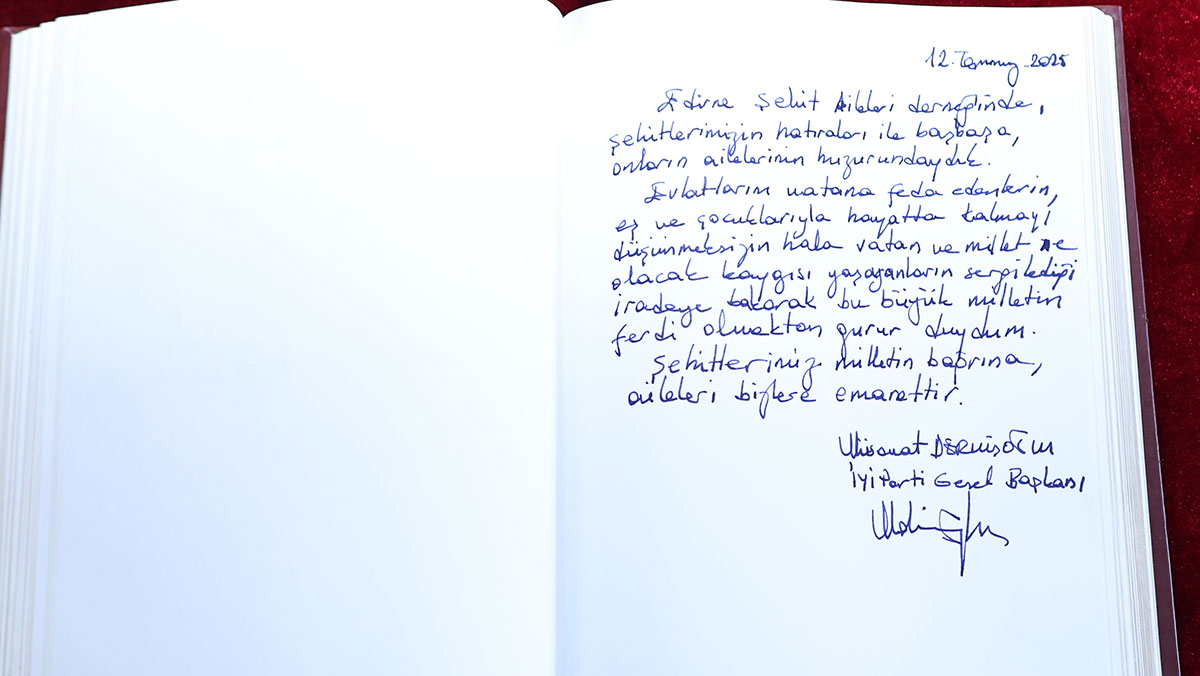 12. Temmuz. 2025
Edirne Şehit Aileleri derneğinde,
şehitlerimizin hatıraları ile başbaşa,
onların ailelerinin huzurundaydık.
Evlatlarını vatana feda edenlerin,
eş ve çocuklarıyla hayatta kalmayı
düşünmeksizin hala vatan ve millet ne
olacak kaygısı yaşayanların sergilediği
iradeye bakarak bu büyük milletin
ferdi olmaktan gurur duydum.
Şehitlerimiz milletin bağrına,
aileleri bizlere emanettir.
Müsavat DERVİŞOĞLU
İyi Parti Genel Başkanı